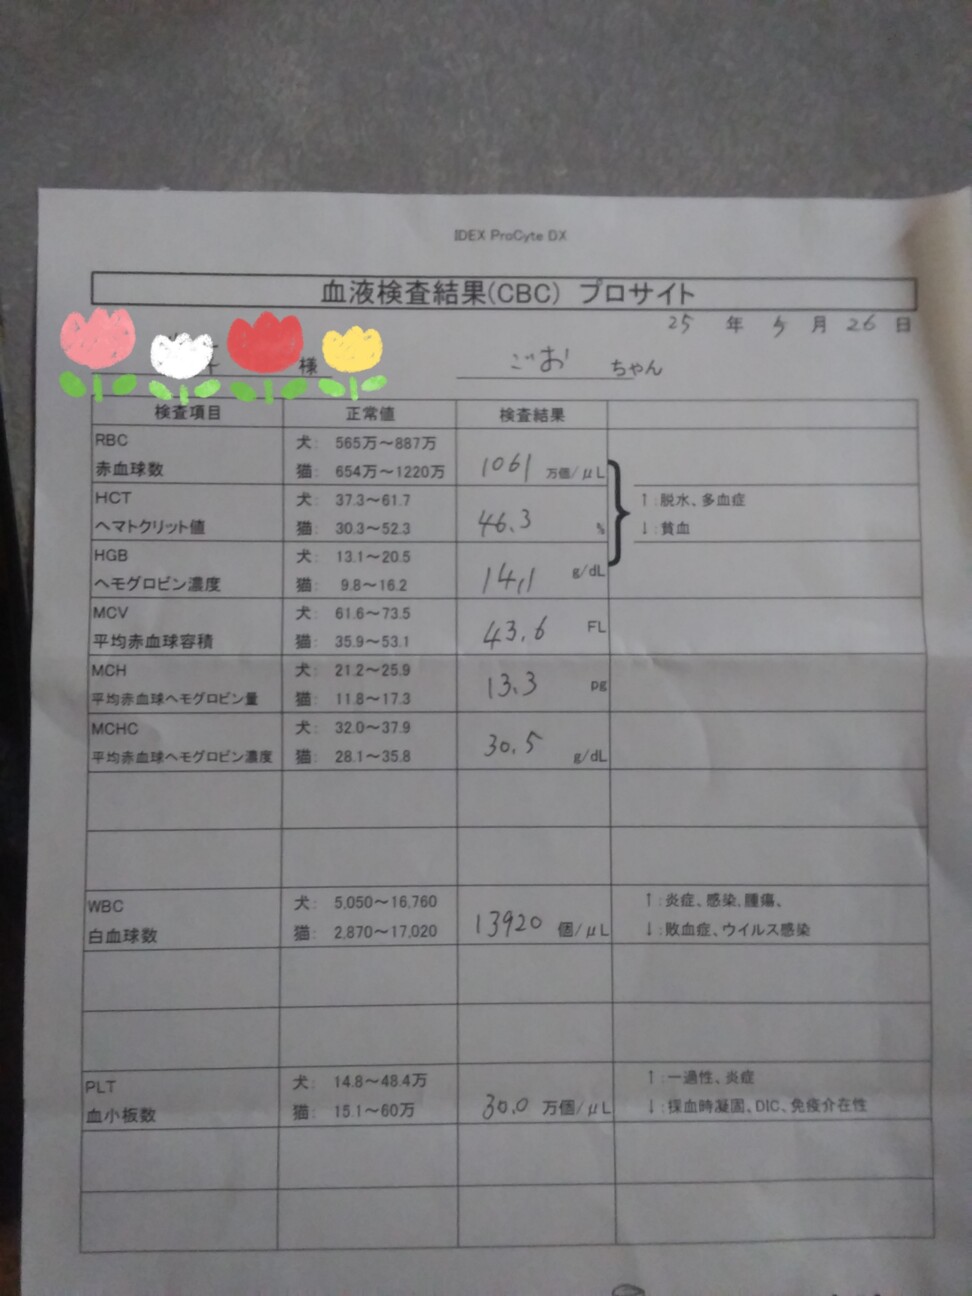 IDEX ProCyte DX
血液検査結果(CBC) プロサイト
25 年 5 月 26 日
様 ごお ちゃん
検査項目 正常値 検査結果
RBC 犬: 565万～887万
赤血球数 猫: 654万～1220万 1061 万個/μL
HCT 犬: 37.3～61.7 ↑:脱水、多血症
ヘマトクリット値 猫: 30.3～52.3 46.3 % ↓:貧血
HGB 犬: 13.1～20.5
ヘモグロビン濃度 猫: 9.8～16.2 14,1 g/dL
MCV 犬: 61.6～73.5
平均赤血球容積 猫: 35.9～53.1 43.6 FL
MCH 犬: 21.2～25.9
平均赤血球ヘモグロビン量 猫: 11.8～17.3 13.3 pg
MCHC 犬: 32.0～37.9
平均赤血球ヘモグロビン濃度 猫: 28.1～35.8 30.5 g/dL
WBC 犬: 5,050～16,760 ↑:炎症、感染,腫瘍、
白血球数 猫: 2,870～17,020 13920 個/μL ↓:敗血症、ウイルス感染
PLT 犬: 14.8～48.4万 ↑:一過性、炎症
血小板数 猫: 15.1～60万 30.0 万個/μL ↓:採血時凝固、DIC、免疫介在性